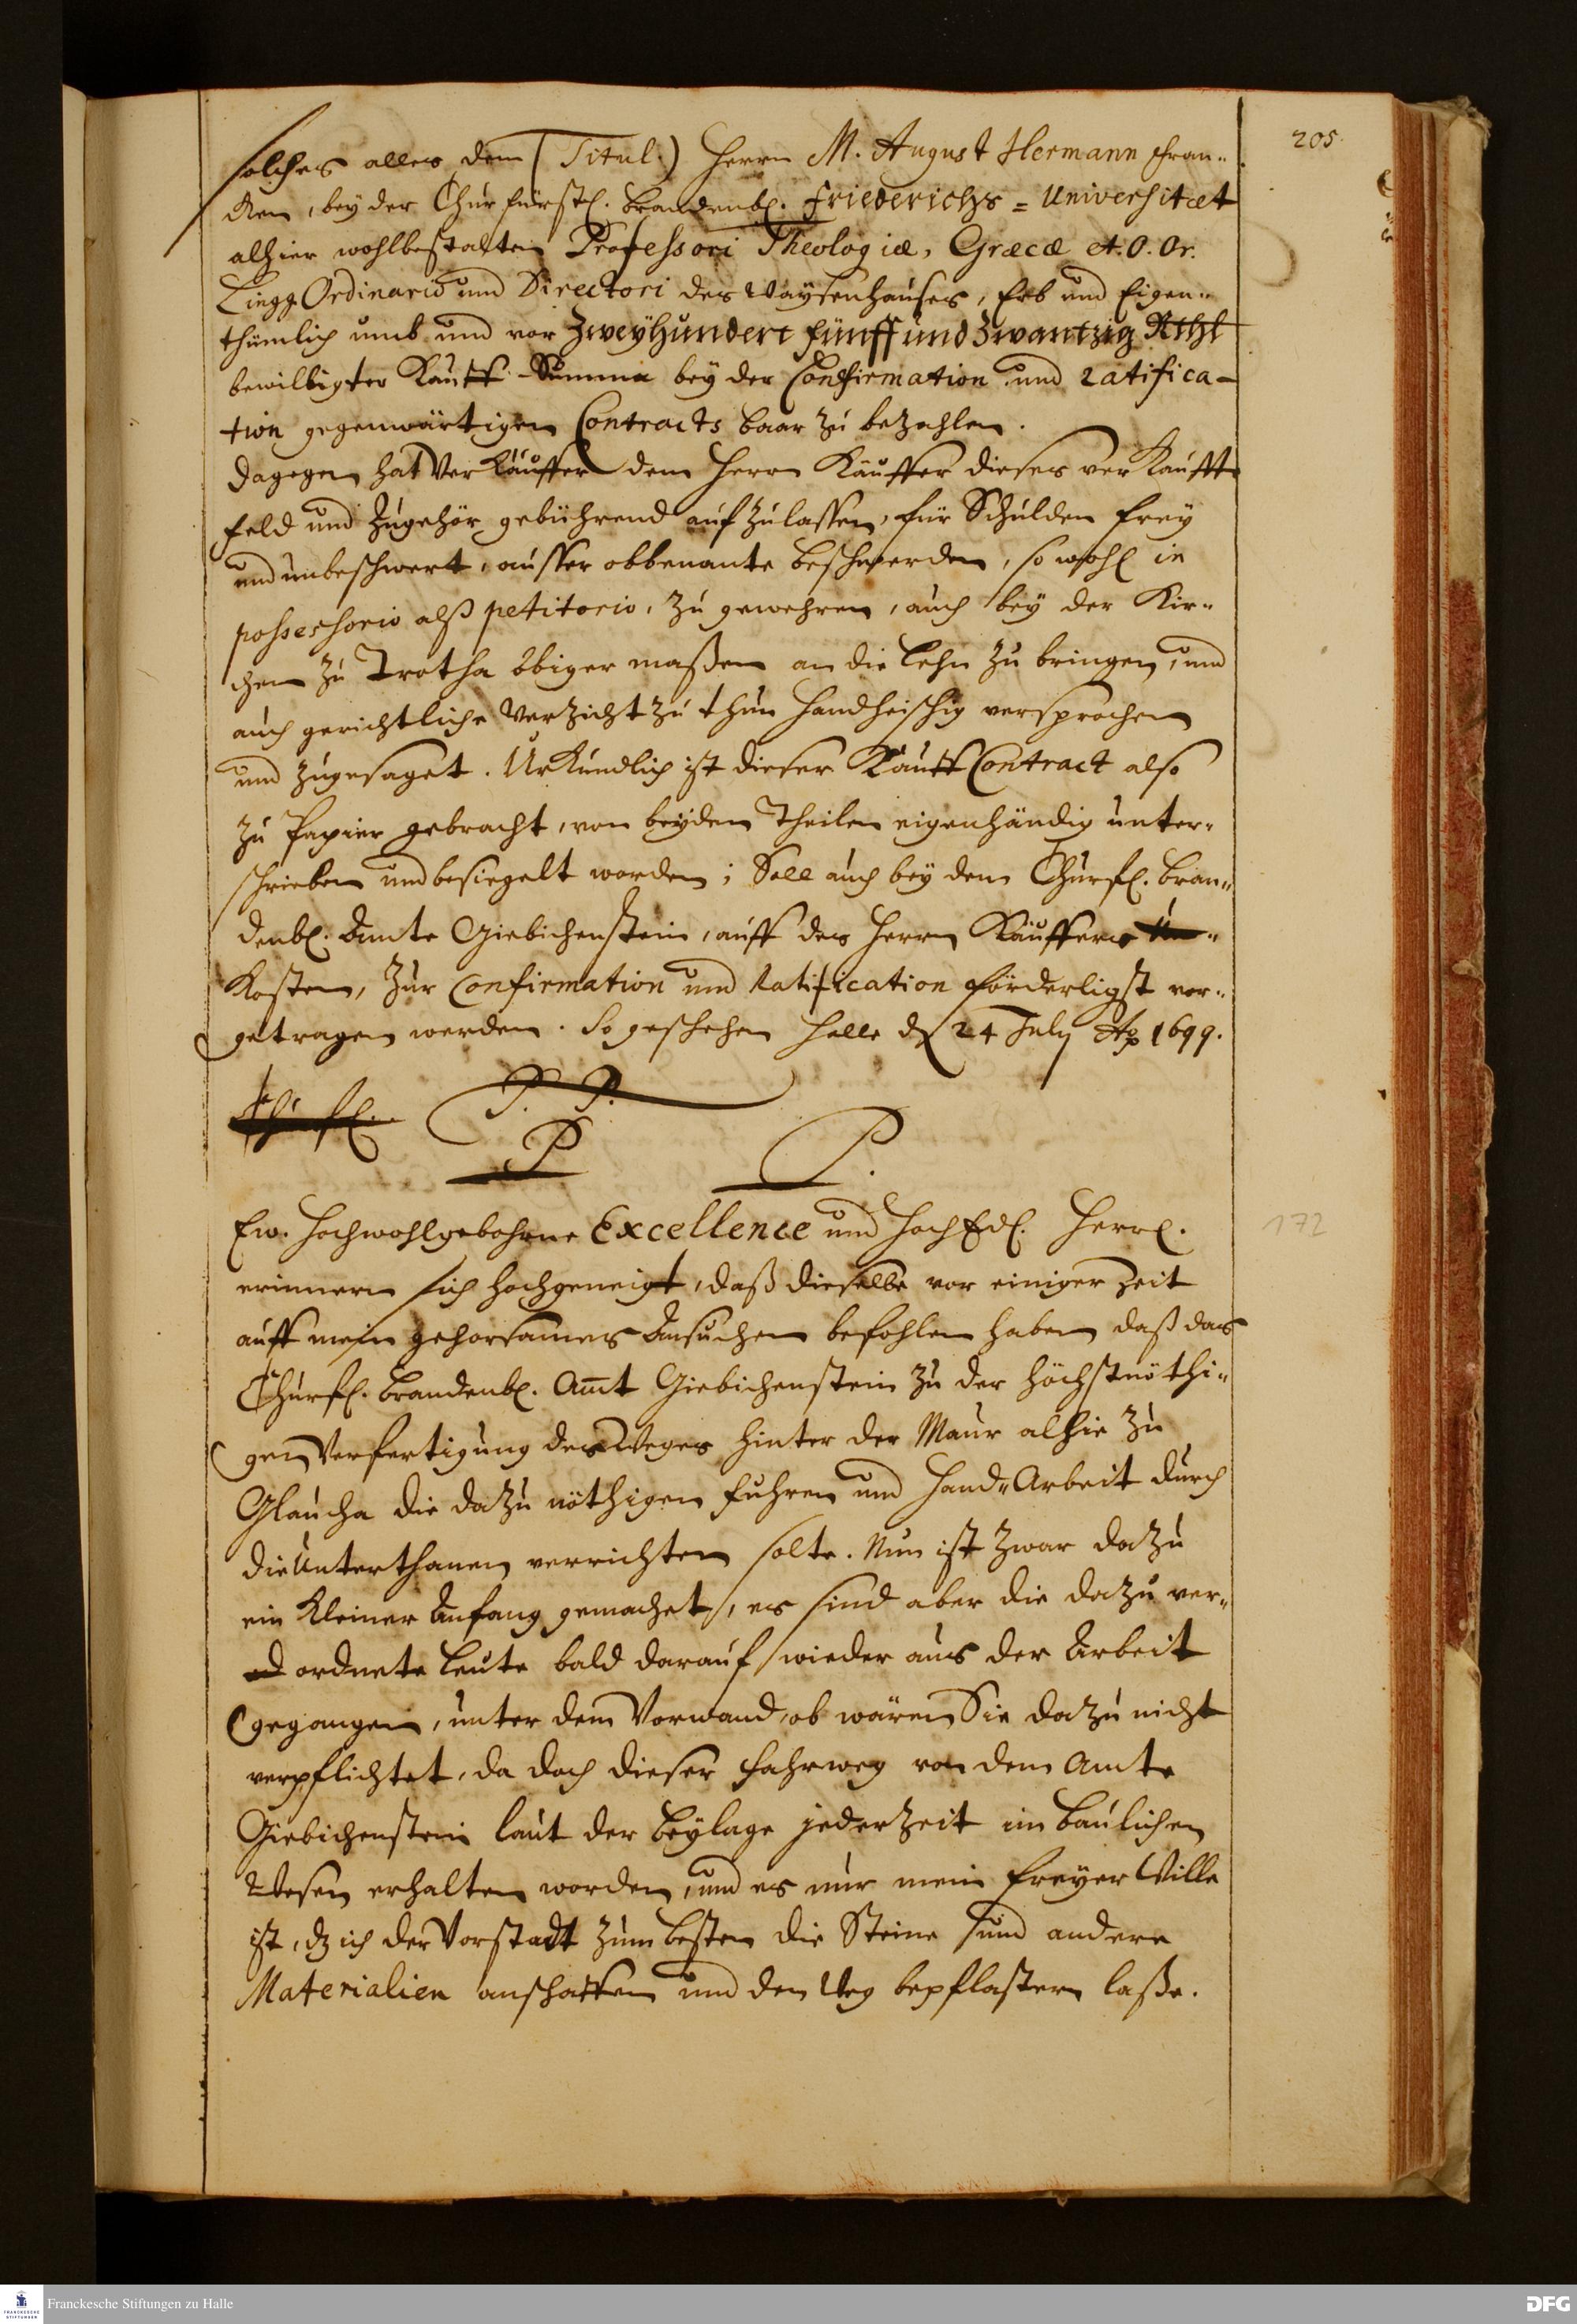 205.
solches alles dem (Titul.) Herrn M. August Hermann Fran-
ken, bey der Churfürstl. Brandenbl. Friederichs=Universitæt
alhier wohlbestalten Professori Theologiæ, Græcæ et. O. Or.
Lingg. Ordinario und Directori des Waysenhauses, Erb und Eigen-
thümlich umb und vor Zweyhundert fünff und Zwantzig Rthl
bewilligter Kauff-Summa bey der Confirmation und ratifica-
tion gegenwärtigen Contracts baar zu bezahlen.
Dagegen hat Verkäuffer dem Herrn Käuffer dieses verkauffte
Feld und Zugehör gebührend aufzulassen, für Schulden frey
und unbeschwert, ausser obbenante beschwerden, so wohl in
possessorio alß petitorio, zu gewehren, auch bey der Kir-
chen zu Trotha obiger maßen an die Lehn zu bringen, und
auch gerichtliche Verzicht zu thun handheischig versprochen
und zugesaget. Uhrkundlich ist dieser Kauff Contract also
zu Papier gebracht, von beyden Theilen eigenhändig unter-
schrieben und besiegelt worden; Soll auch bey dem Churfl. Bran-
denbl. Amte Giebichenstein, auff des Herrn Käuffers Un-
kosten, zur Confirmation und Ratification förderligst vor-
getragen werden. So geschehen Halle d. 24 July Ao 1699.
Churfl. P. P.
P P.
172
Ew. Hochwohlgebohrne Excellence und HochEdl. Herrl.
erinnern sich hochgeneigt, daß dieselbe vor einiger Zeit
auff mein gehorsames Ansuchen befohlen haben, daß das
Churfl. Brandenbl. Amt Giebichenstein zu der höchstnöthi-
gen Verfertigung des Weges hinter der Maur alhie zu
Glaucha die dazu nöthigen Fuhren und Hand-Arbeit durch
die Unterthanen verrichten solte. Nun ist zwar dazu
ein kleiner Anfang gemachet, es sind aber die dazu ver-
ordnete Leute bald darauf wieder aus der Arbeit
gegangen, unter dem Vorwand, ob wären Sie dazu nicht
verpflichtet, da doch dieser Fahrweg von dem Amte
Giebichenstein laut der Beylage jederzeit im baulichen
Wesen erhalten worden, und es nur mein freyer Wille
ist, dz ich der Vorstadt zum besten die Steine und andere
Materialien anschaffen und den Weg bepflastern lasse.
Franckesche Stiftungen zu Halle
DFG